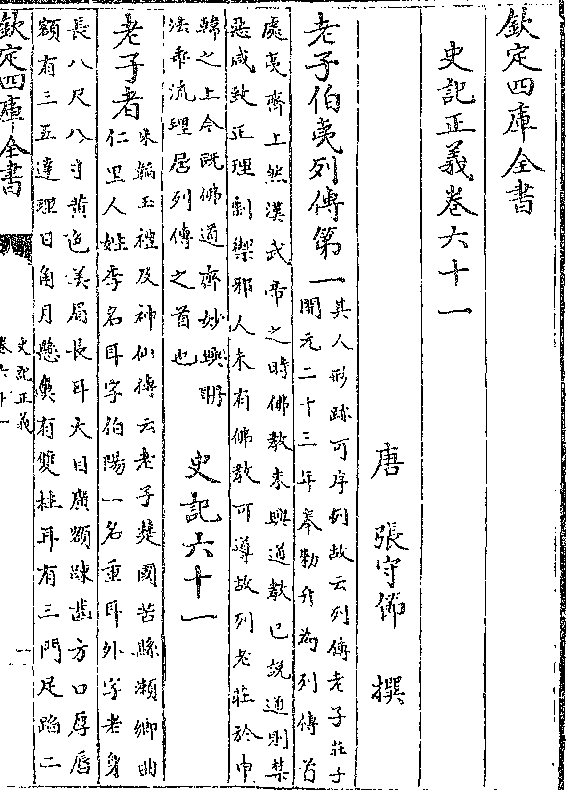 欽定四庫全書
史記正義卷六十一
唐 張守節 撰
老子伯夷列傳第一
其人形跡可序列故云列傳老子莊子
開元二十三年奉勅升為列傳首
處夷齊上然漢武帝之時佛教未興道教已說道則禁
惡咸致正理制禦邪人未有佛教可導故列老莊於申
韓之上今既佛道齊妙興弼
法乖流理居列傳之首也
史記六十一
老子者
朱韜玉禮及神仙傳云老子楚國苦縣瀨鄉曲
仁里人姓李名耳字伯陽一名重耳外字老身
長八尺八寸黄色美眉長耳大目廣額疎齒方口厚唇
額有三五達理日角月懸鼻有雙柱耳有三門足蹈二
欽定四庫全書
史記正義
卷六十一
一